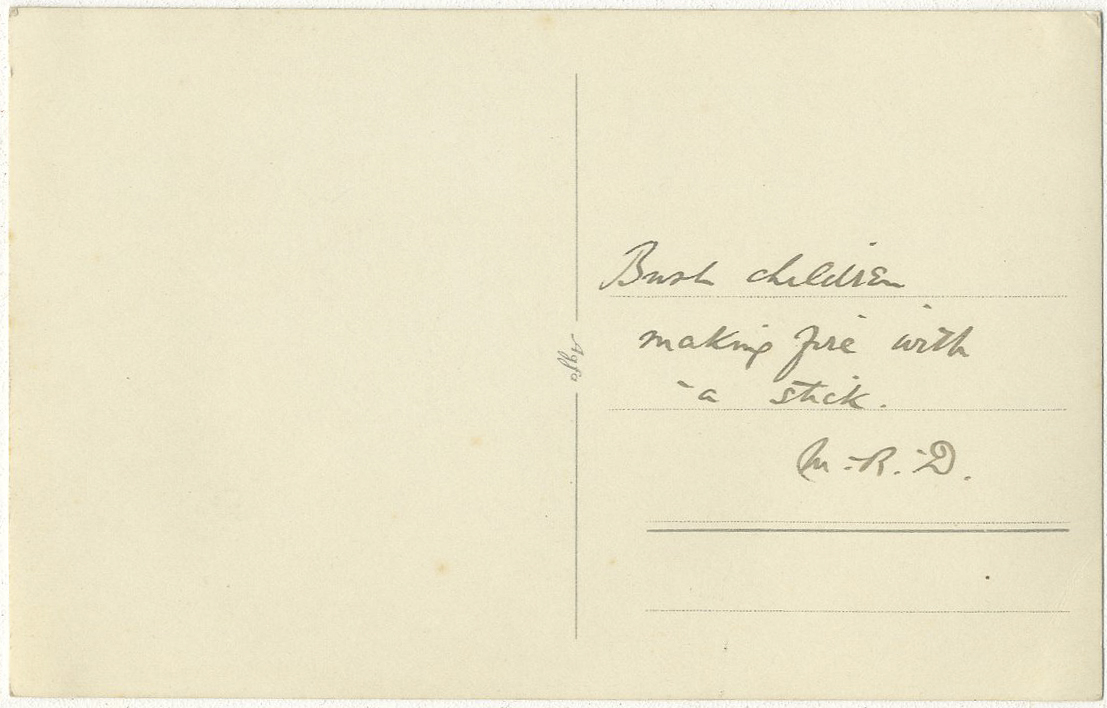 Bush children
making fire with
a stick.
M.R.D.
Agfa